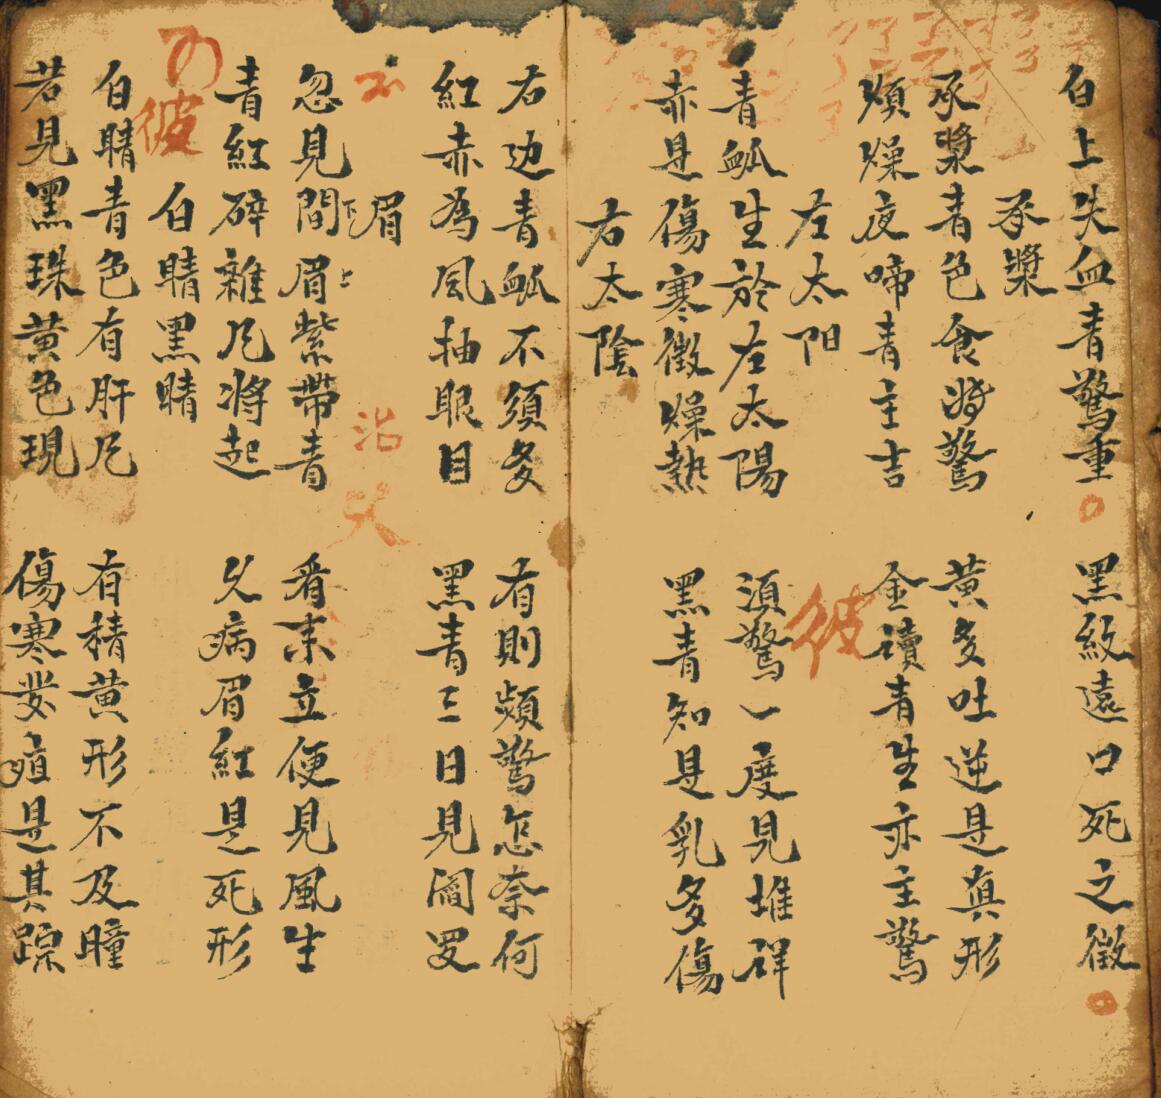 白上失血青驚重 黑紋遠口死之徵
承漿
承漿青色食時驚 黃多吐逆是真形
煩燥夜啼青主吉 金讀青生亦主驚
左太阳
青䘐生於左太陽 須驚一度見堆詳
赤是傷寒徵燥熱 黑青知是乳多傷
右太陰
右边青䘐不須多 有則頻驚怎奈何
紅赤為風抽眼目 黑青三日見阎罗
眉
忽見間眉紫帶青 看来立便見風生
青紅碎雜凡將起 久病眉紅是死形
白睛黑睛
白睛青色有肝凡 有積黃形不及瞳
若見黑珠黃色現 傷寒是其踪
彼
治
彼